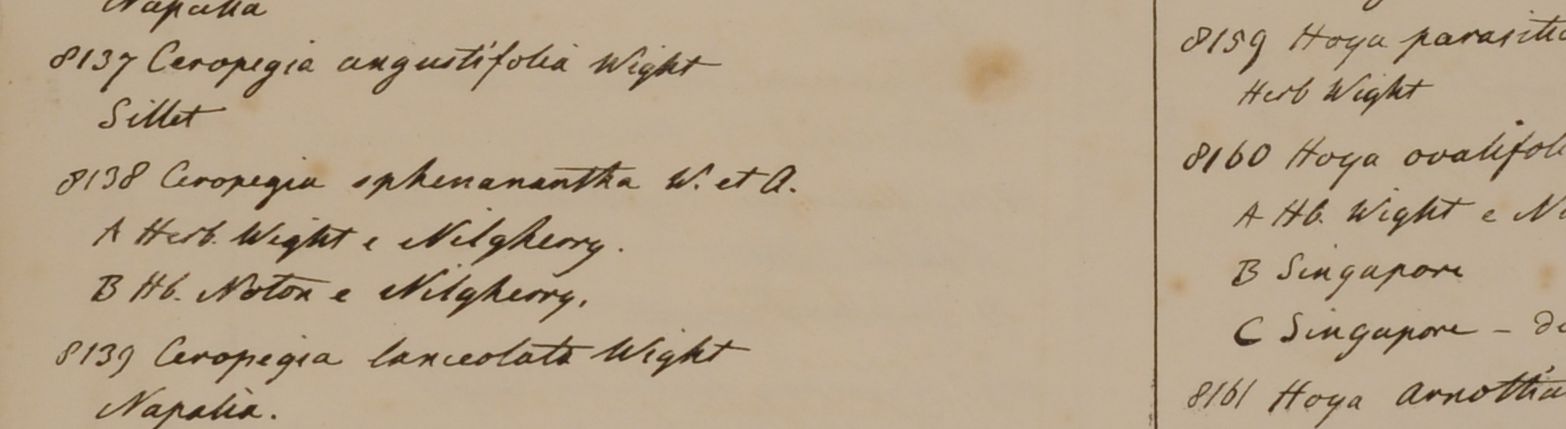 Napalia
8137 Ceropegia angustifolia Wight
Sillet
8138 Ceropegia sphenanantha W. et A.
A Herb. Wight e Nilgherry.
B Hb. Noton e Nilgherry.
8139 Ceropegia lanceolata Wight
Napalia.
8159 Hoya parasitic
Herb Wight
8160 Hoya ovalifol
A Hb. Wight e N
B Singapore
C Singapore - de
8161 Hoya Arnottia